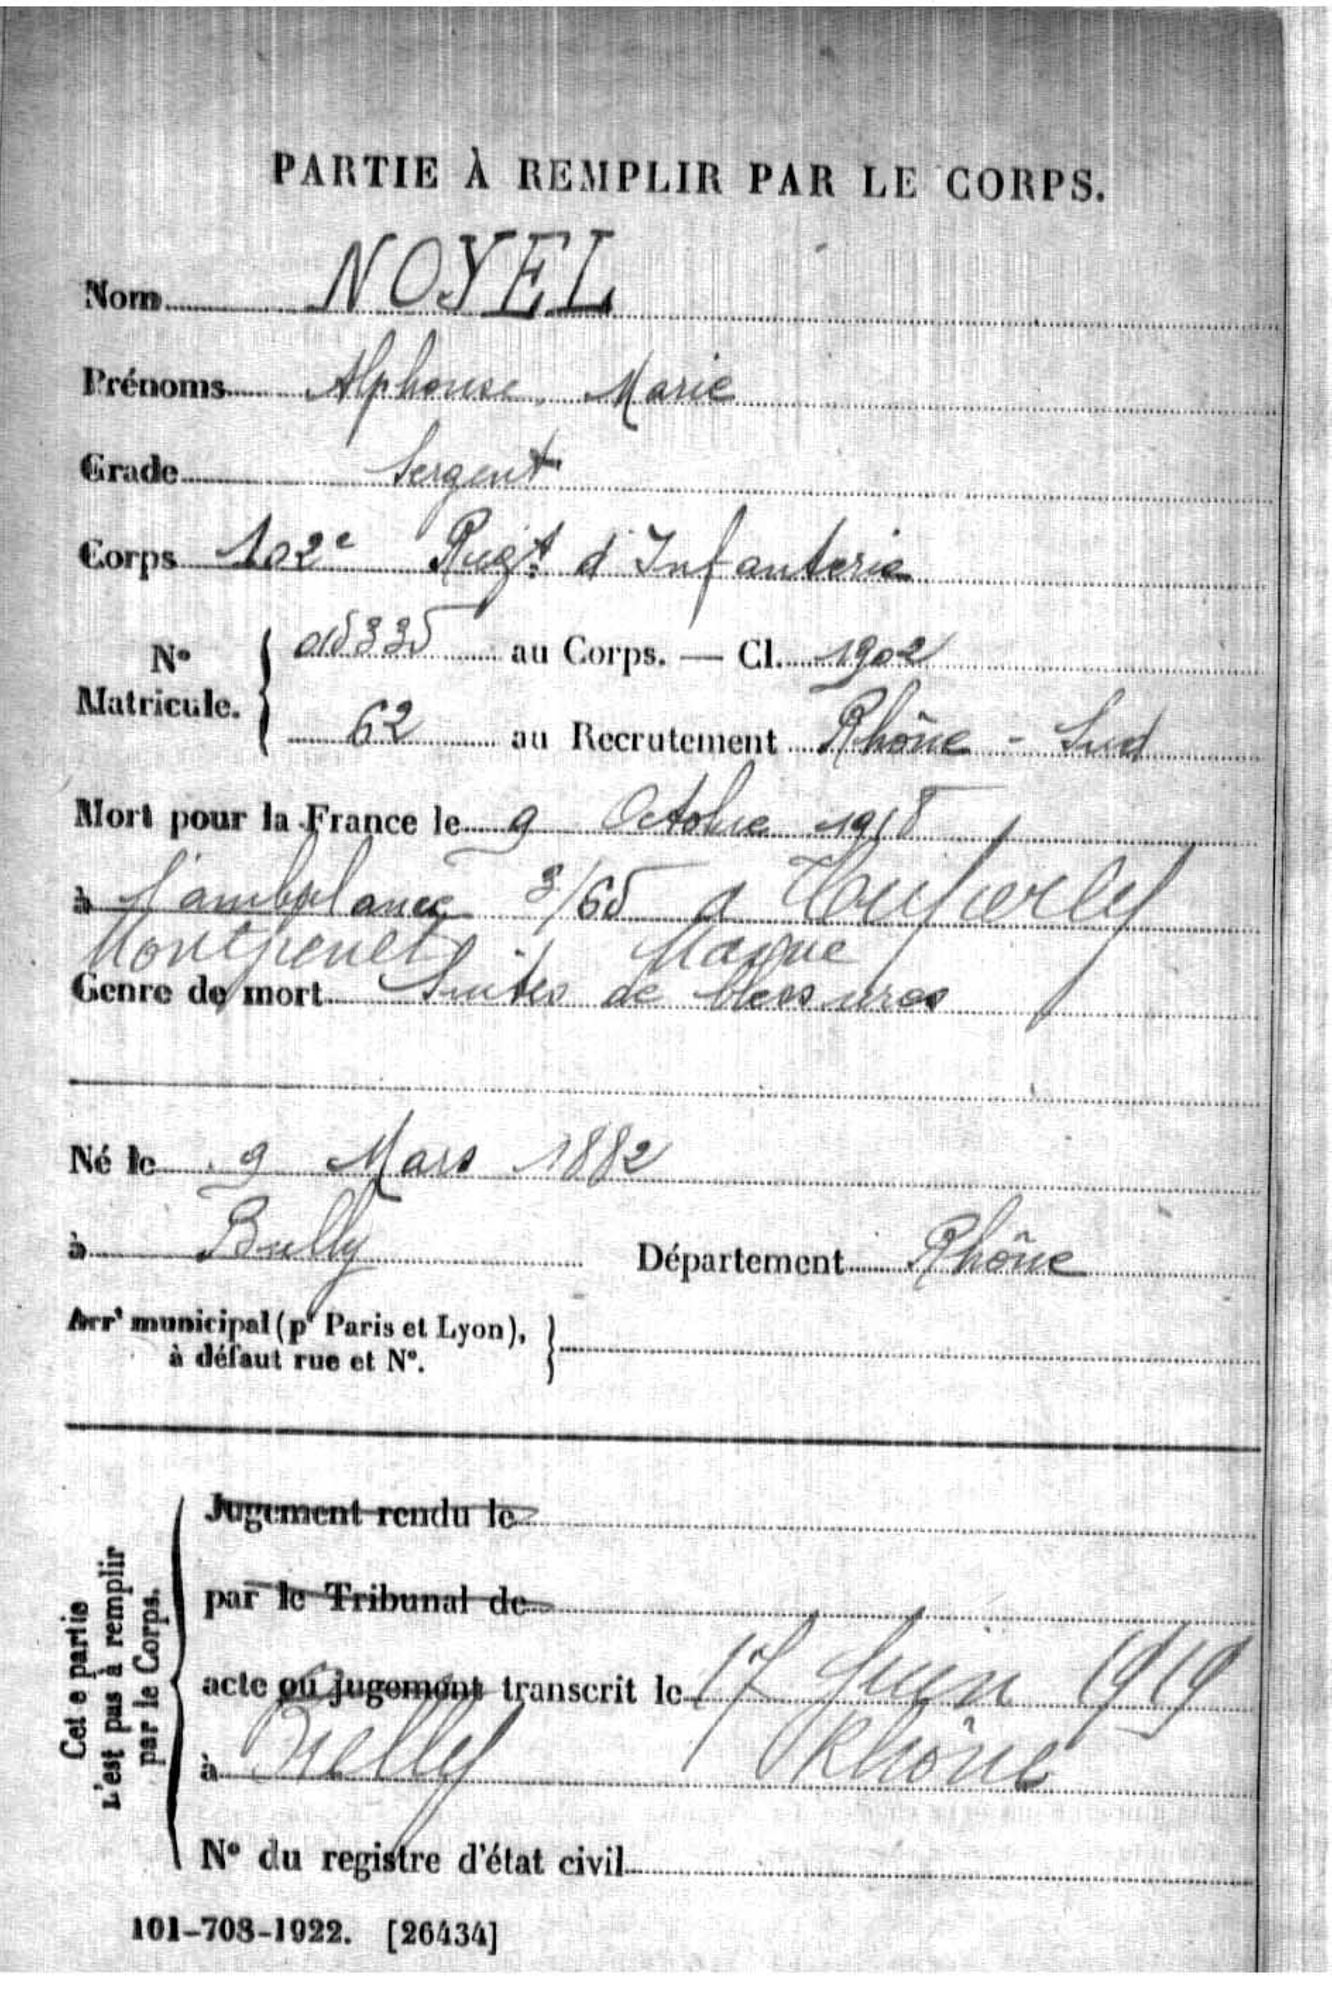 PARTIE À REMPLIR PAR LE CORPS.
Nom NOYEL
Prénoms Alphonse, Marie
Grade Sergent
Corps 102e Regt d'Infanterie
No Matricule. { 015335 au Corps. — Cl. 1902
62 au Recrutement Rhône - Sud
Mort pour la France le 9 Octobre 1918
à l'ambulance 3/65 a
Marne
Genre de mort Suites de blessures
Né le 9 Mars 1882
à Bully Département Rhône
Arrt municipal (pr Paris et Lyon),
à défaut rue et No. }
Cette partie
n'est pas à remplir
par le Corps.
Jugement rendu le
par le Tribunal de
acte ou jugement transcrit le 17 Juin 1919
à Bully Rhône
No du registre d'état civil
101-708-1922. [26434]